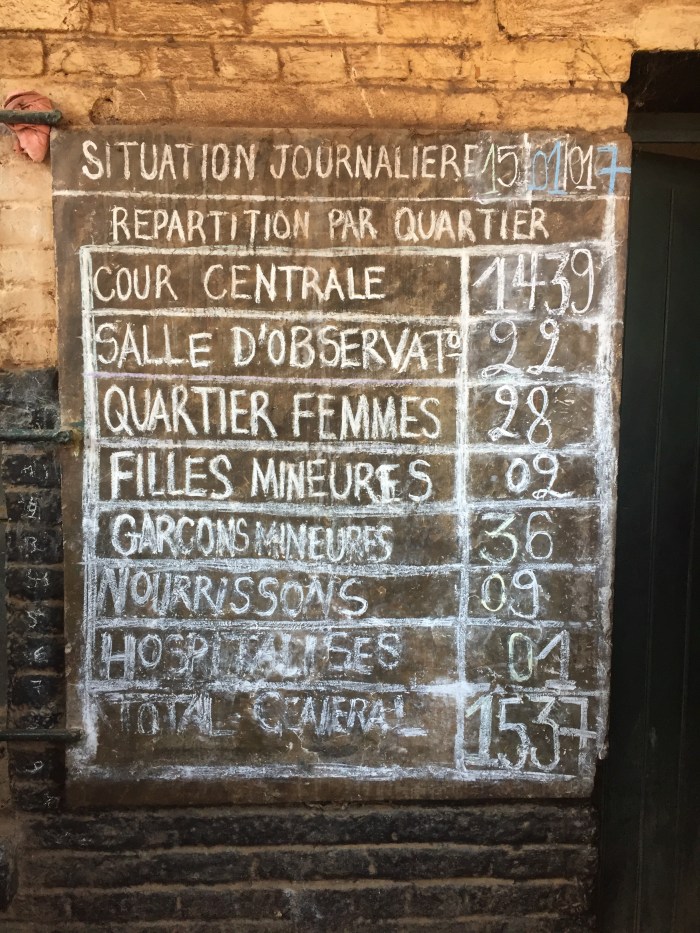 SITUATION JOURNALIERE 15/01/017
REPARTITION PAR QUARTIER
COUR CENTRALE 1439
SALLE D'OBSERVAT° 22
QUARTIER FEMMES 28
FILLES MINEURES 02
GARCONS MINEURES 36
NOURRISSONS 09
HOSPITALISES 01
TOTAL GENERAL 1537